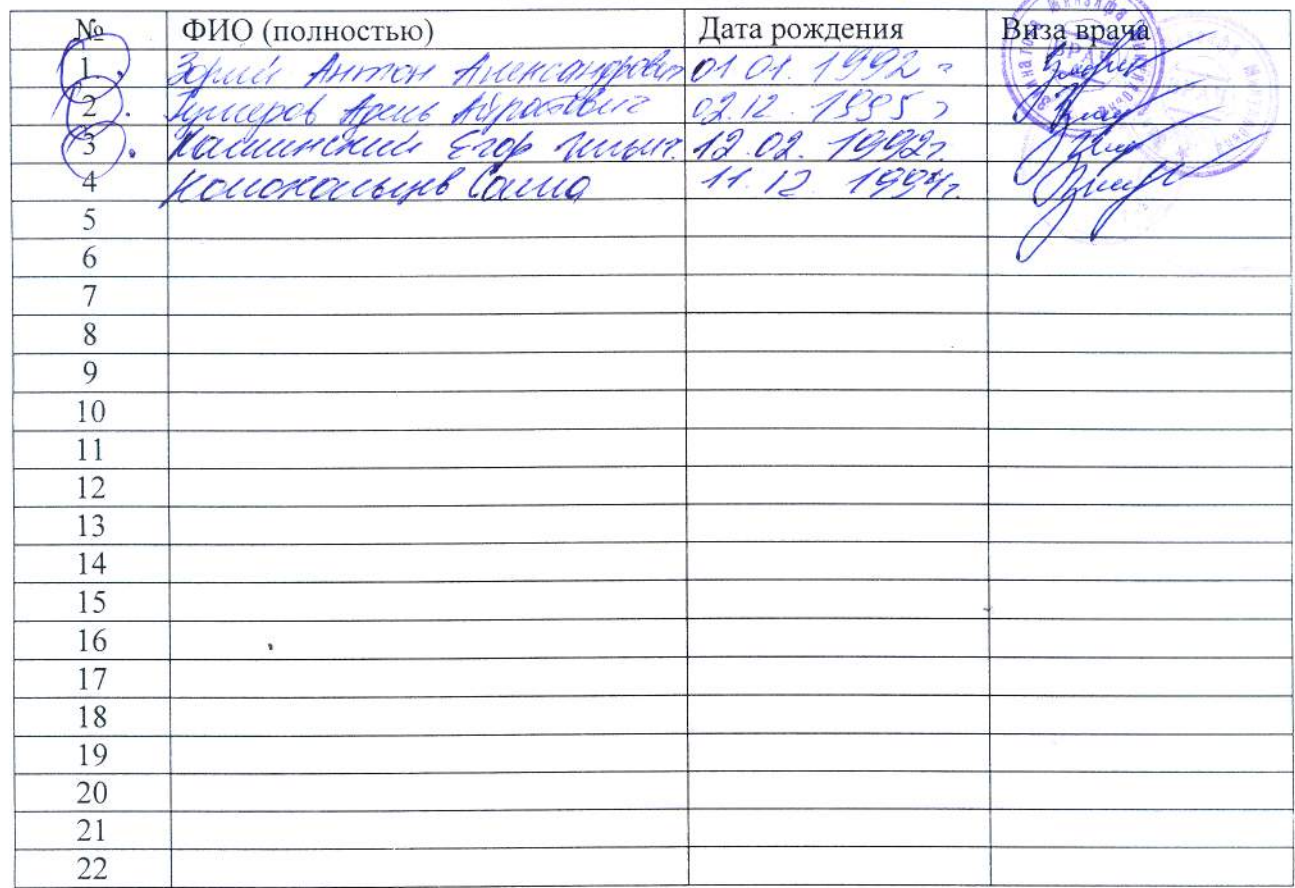 № ФИО (полностью) Дата рождения Виза врача
1 Зорий Антон Александрович 01 01. 1992 г
2 Айратович 02.12. 1995 г
3 Каминский Егор Ильич. 12.02. 1992г
4 Колокольцев Саша 11.12. 1994г.
5
6
7
8
9
10
11
12
13
14
15
16
17
18
19
20
21
22